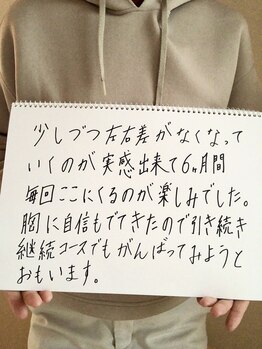 少しづつ左右差がなくなって
いくのが実感出来て6ヶ月間
毎回ここにくるのが楽しみでした。
胸に自信もでてきたので引き続き
継続コースでもがんばってみようと
おもいます。